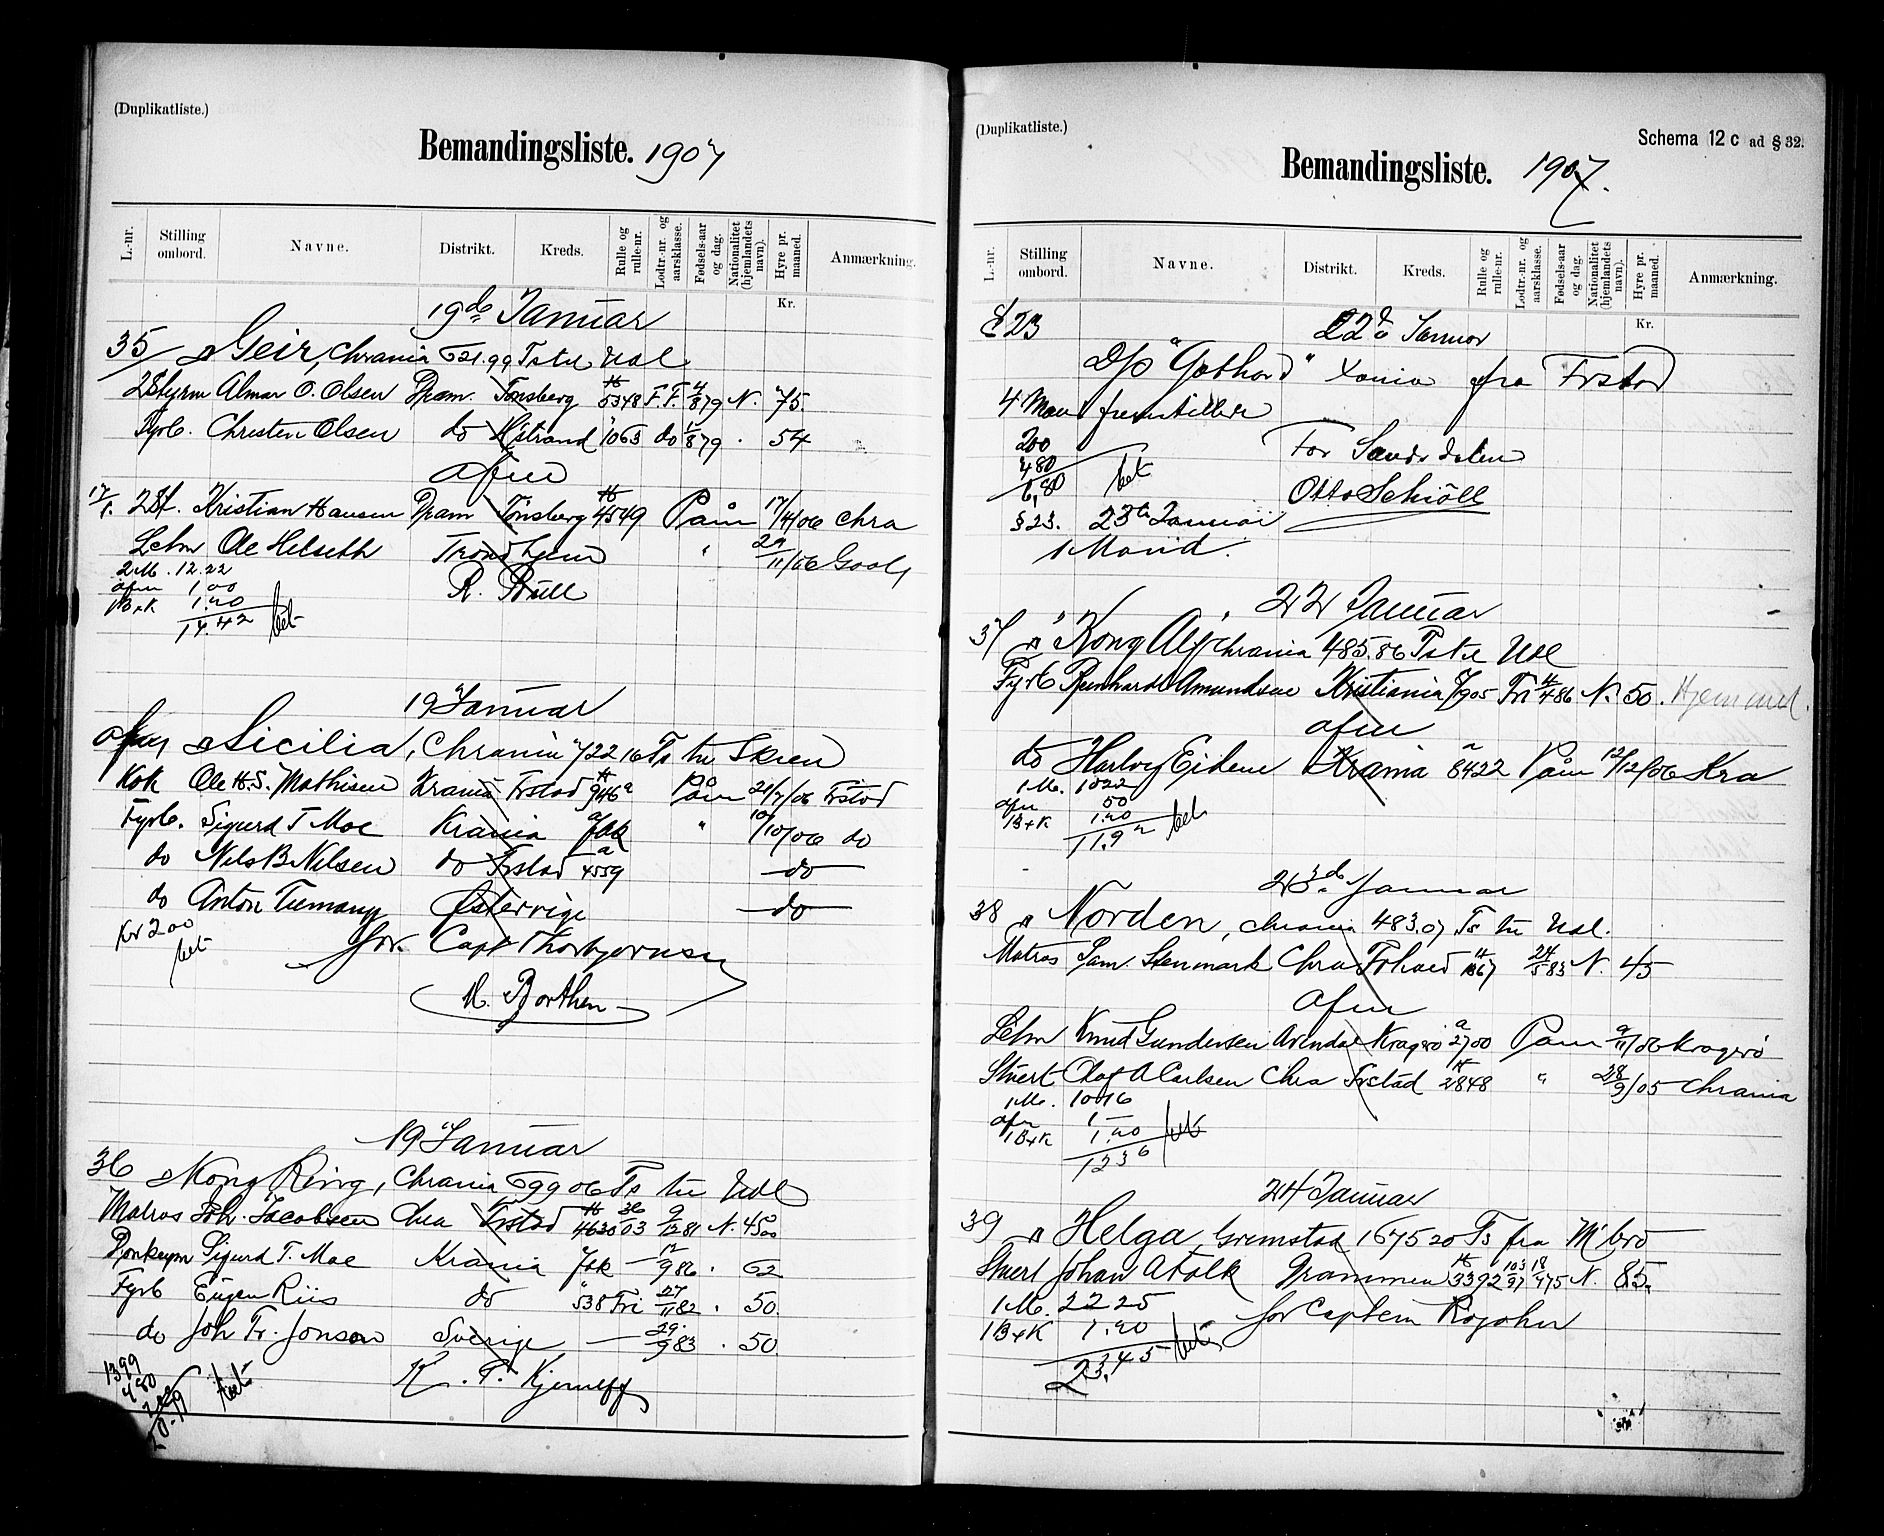 (Duplikatliste.)
Bemandingsliste. 1907
L.-nr. Stilling ombord. Navne. Distrikt. Kreds. Rulle og rulle-nr. Lodtr.-nr. og aarsklasse. Fødsels-aar og dag. Nationalitet (hjemlandets navn). Hyre pr. maaned. Anmærkning.
Kr.
19de Januar
35 Geir, Chrania 621.99 Ts til Udl
2 Styrm Almar O. Olsen Dram. Tønsberg 5348 F.F. 4/8 79 N. 75.
Fyrb. Christen Olsen do H'strand 1063 do 1/8 79 . 54
afm
17/1. 2 St. Kristian Hansen Dram Tønsberg 4549 Paam 17/4/06 Chra
Letm Ole Helseth Trondhjem " 29/11/06 Goole
2 M. 12.22
afm 1.00
1 B+K 1.20
14.42 bet
R. Bull
19 Januar
afm Sicilia, Chrania 722 16 Ts til Skien
Kok Ole H. S. Mathisen Krania Frstad 946 Paam 21/7/06 Frstad
Fyrb. Sigurd T Moe Krania Jok " 10/10/06 do
do Nels B Nilsen do Frstad 4559 do
do Anton Tiemany Østerrige do
Kr 200 bet
for Capt Thorbjørnsen
M. Borthen
19 Januar
36 Kong Ring, Chrania 699 06 Ts til Udl
Matros Joh. Jacobsen Chra Frstad 4630 36/03 9/12 81 N. 45.00
Donkeym Sigurd T. Moe Krania Jok — 12/9 86 . 62
Fyrb Eugen Riis do 538 Fri 27/11 82 . 50.
do Joh Fr. Jonson Sverige — 29/9 83 . 50
1399
480
200
20.79 bet
K. T. Kjerulff
(Duplikatliste.)
Schema 12 c ad § 32.
Bemandingsliste. 1907.
L.-nr. Stilling ombord. Navne. Distrikt. Kreds. Rulle og rulle-nr. Lodtr.-nr. og aarsklasse. Fødsels-aar og dag. Nationalitet (hjemlandets navn). Hyre pr. maaned. Anmærkning.
Kr.
§ 23 22de Januar
D/S "Gothard" Xania fra Frstad
4 Mand fremstillede
200
480
6,80 bet
For Sandsdalen
Otto Schiøll
§ 23. 23de Januar
1 Mand.
22 Januar
37 "Kong Alf" Chrania 485.86 Ts til Udl
Fyrb Reinhardt Amundsen Kristiania 7/905 Fri 4/4 86 N. 50. Hjemmel.
afm
do Halvor Eidene Krania 8422 Paam 12/12/06 Kra
1 M. 1022
afm 50
1 B+K 1.20
11.92 bet
23de Januar
38 Norden, Chrania 483.07 Ts til Udl.
Matros Sam. Stenmark Chra Frhald 1367 24/5 83 N. 45
afm
Letm Knud Gundersen Arendal Kragerø 2700 Paam 9/11/06 Kragerø
Stuert Olaf A Carlsen Chra Frstad 2848 " 28/9/05 Chrania
1 M. 1016
afm 1 —
1 B+K 1.20
1236 bet
24 Januar
39 Helga, Grimstad 1675 20 Ts fra M'bro
Stuert Johan A Falk Drammen 3392 103/97 18/4 75 N. 85.
1 M. 22 25
1 B+K 1.20
23.45 bet
for Captein Rojohn